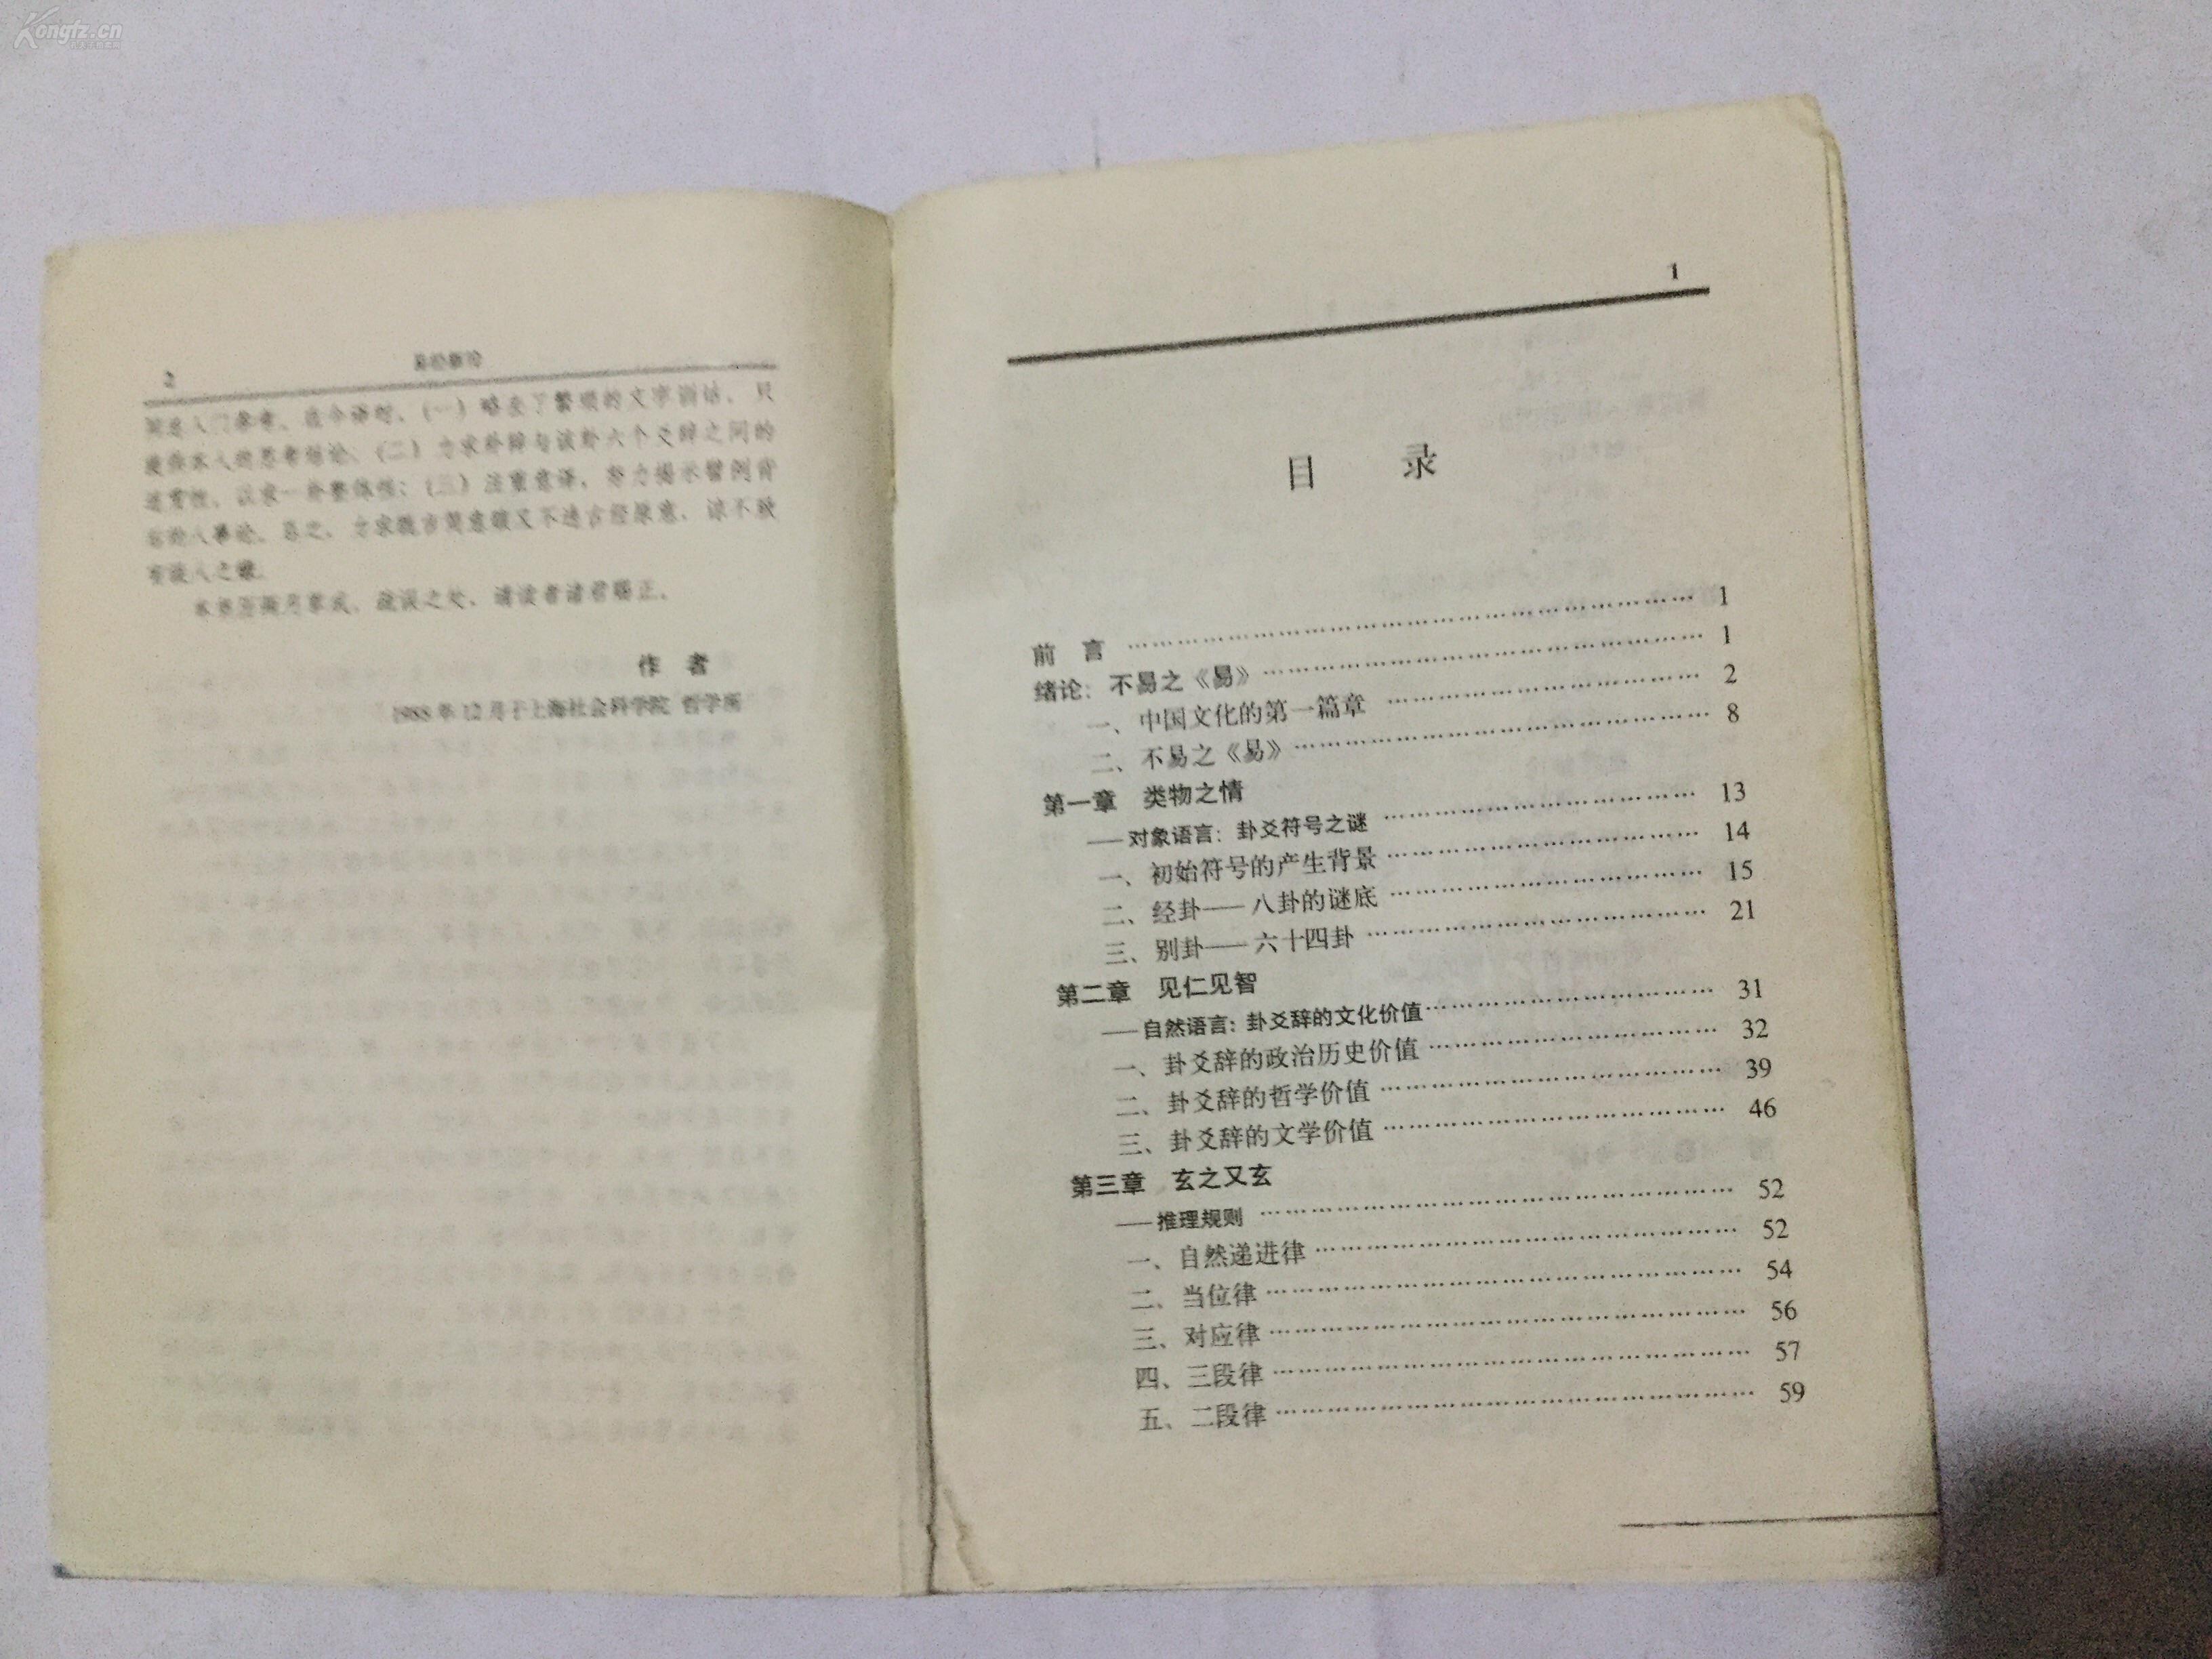 Kongfz.cn
2
易经新论
是入门参考。在今译时,(一)略去了繁琐的文字训诂,只
本人的思考结论;(二)力求卦辞与该卦六个爻辞之间的
连贯性,以求一卦整体性;(三)注重意译,努力揭示
总之,力求既言简意赅又不违古经原意,谅不致
有欺人之嫌。
疏误之处,请读者诸君
作 者
1988年12月于上海社会科学院 哲学所
1
目 录
前 言 …… 1
绪论:不易之《易》…… 1
一、中国文化的第一篇章 …… 2
二、不易之《易》…… 8
第一章 类物之情
——对象语言:卦爻符号之谜 …… 13
一、初始符号的产生背景 …… 14
二、经卦——八卦的谜底 …… 15
三、别卦——六十四卦 …… 21
第二章 见仁见智
——自然语言:卦爻辞的文化价值 …… 31
一、卦爻辞的政治历史价值 …… 32
二、卦爻辞的哲学价值 …… 39
三、卦爻辞的文学价值 …… 46
第三章 玄之又玄
——推理规则 …… 52
一、自然递进律 …… 52
二、当位律 …… 54
三、对应律 …… 56
四、三段律 …… 57
五、二段律 …… 59